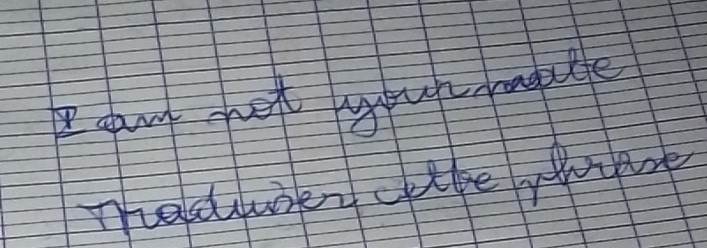 I am not your
Traduisez cette phrase